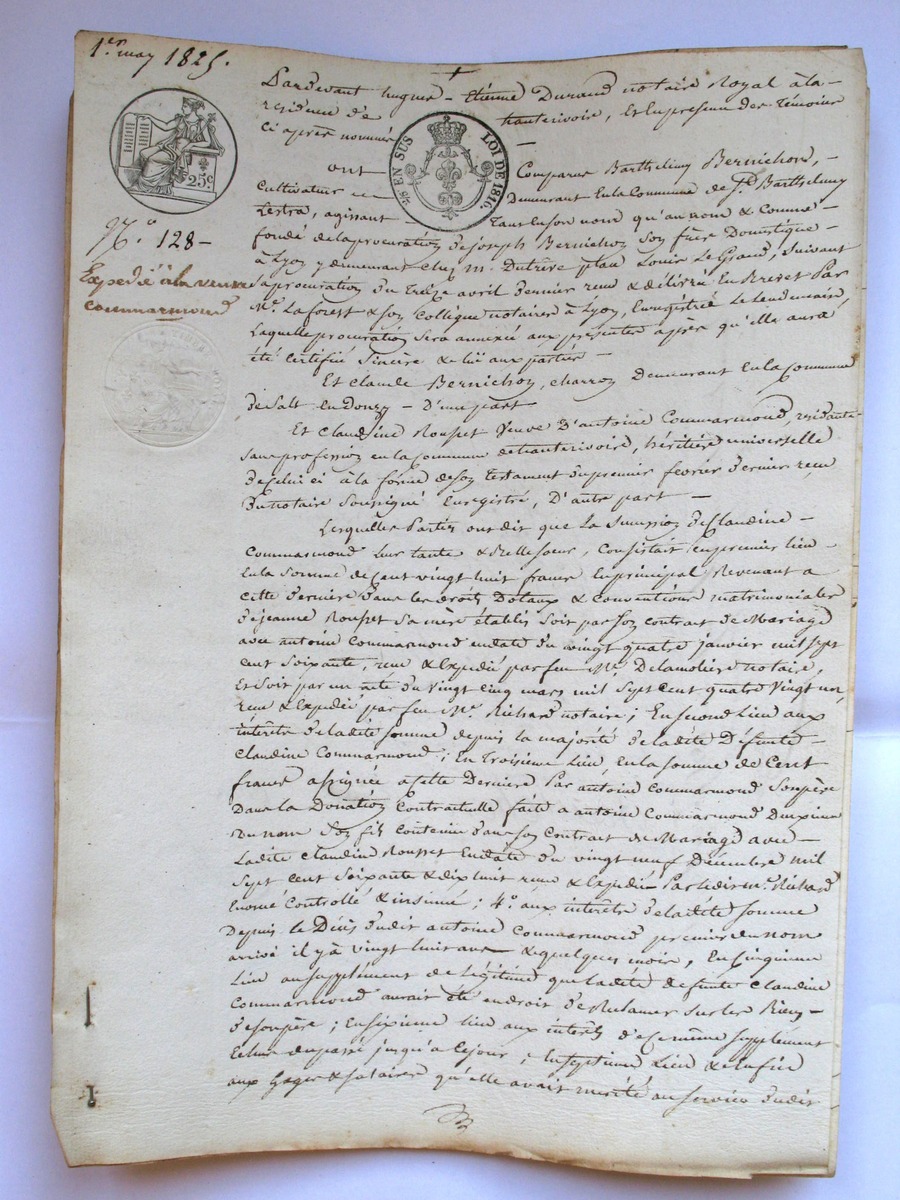 1.er may 1825.
Pardevant hugues - Etienne Durand notaire Royal à la -
residence de hauterivoire, Et en presence des Témoins
ci après nommés -
25c
28e EN SUS LOI DE 1816.
N.o 128 -
Expedié à la veuve
commarmond
ont Comparus Barthelemy Bernichon, -
cultivateur Demeurant en la Commune de St Barthelemy
Lestra, agissant Tant en son nom qu'au nom & comme -
fondé de la procuration de joseph Bernichon son frère Domestique -
à Lyon y demeurant chez m. Dutrève place Louis Le Grand, suivant
la procuration du Treize avril dernier reçue & délivrée en Brevet Par
Me. Laforest & son Collègue notaires à Lyon, Enregistrée Le Lendemain,
Laquelle procuration sera annexée aux présentes après qu'elle aura
été certifié sincère & lu aux parties -
Et claude Bernichon, charron Demeurant en la Commune
de Salt en donzy - D'une part
Et Claudine Rousset Veuve d'antoine Commarmond, residante
sans profession en la commune de hauterivoire, héritière universelle
de celui ci à la forme de son testament du premier février dernier reçu
du notaire soussigné Enregistré, D'autre part -
Lesquelles Parties ont dit que la succession de Claudine -
Commarmond leur tante & Belle soeur, consistait en premier lieu -
En la somme de Cent vingt huit francs En principal Revenant a
cette dernière dans les droits Dotaux & conventions matrimoniales
de jeanne Rousset sa mère établis soit par son contrat de Mariage
avec antoine Commarmond en date du vingt quatre janvier mil sept
cent soixante, reçu & Expedié par feu Me. Delamolière notaire,
Et soit par un acte du vingt cinq mars mil sept cent quatre vingt
reçu & Expedié par feu Me. Richard notaire ; En second Lieu aux
intérêts de ladite somme depuis la majorité de ladite Défunte -
Claudine Commarmond ; En Troisième Lieu En la somme de Cent
francs assignée à cette Dernière Par antoine Commarmond son père
Dans la Donation Contractuelle faite a antoine Commarmond Deuxième
du nom son fils contenue dans son Contrat de Mariage avec -
Ladite Claudine Rousset En date du vingt neuf Décembre mil
Sept cent Soixante & dix huit reçu & Expedié Par ledit me. Richard
controllé & insinué ; 4.o aux intérêts de ladite somme
Depuis le Décès dudit antoine Commarmond premier du nom
arrivé il y à vingt huit ans & quelques mois, En cinquième
Lieu au supplément de Légitime que ladite defunte Claudine
Commarmond aurait été en droit de Reclamer sur les Biens -
de son père ; En sixième lieu aux intérêts d'ece même supplément
Echus du passé jusqu'a ce jour ; En septième Lieu & Enfin
aux Gages & salaires qu'elle avait mérité au service dudit